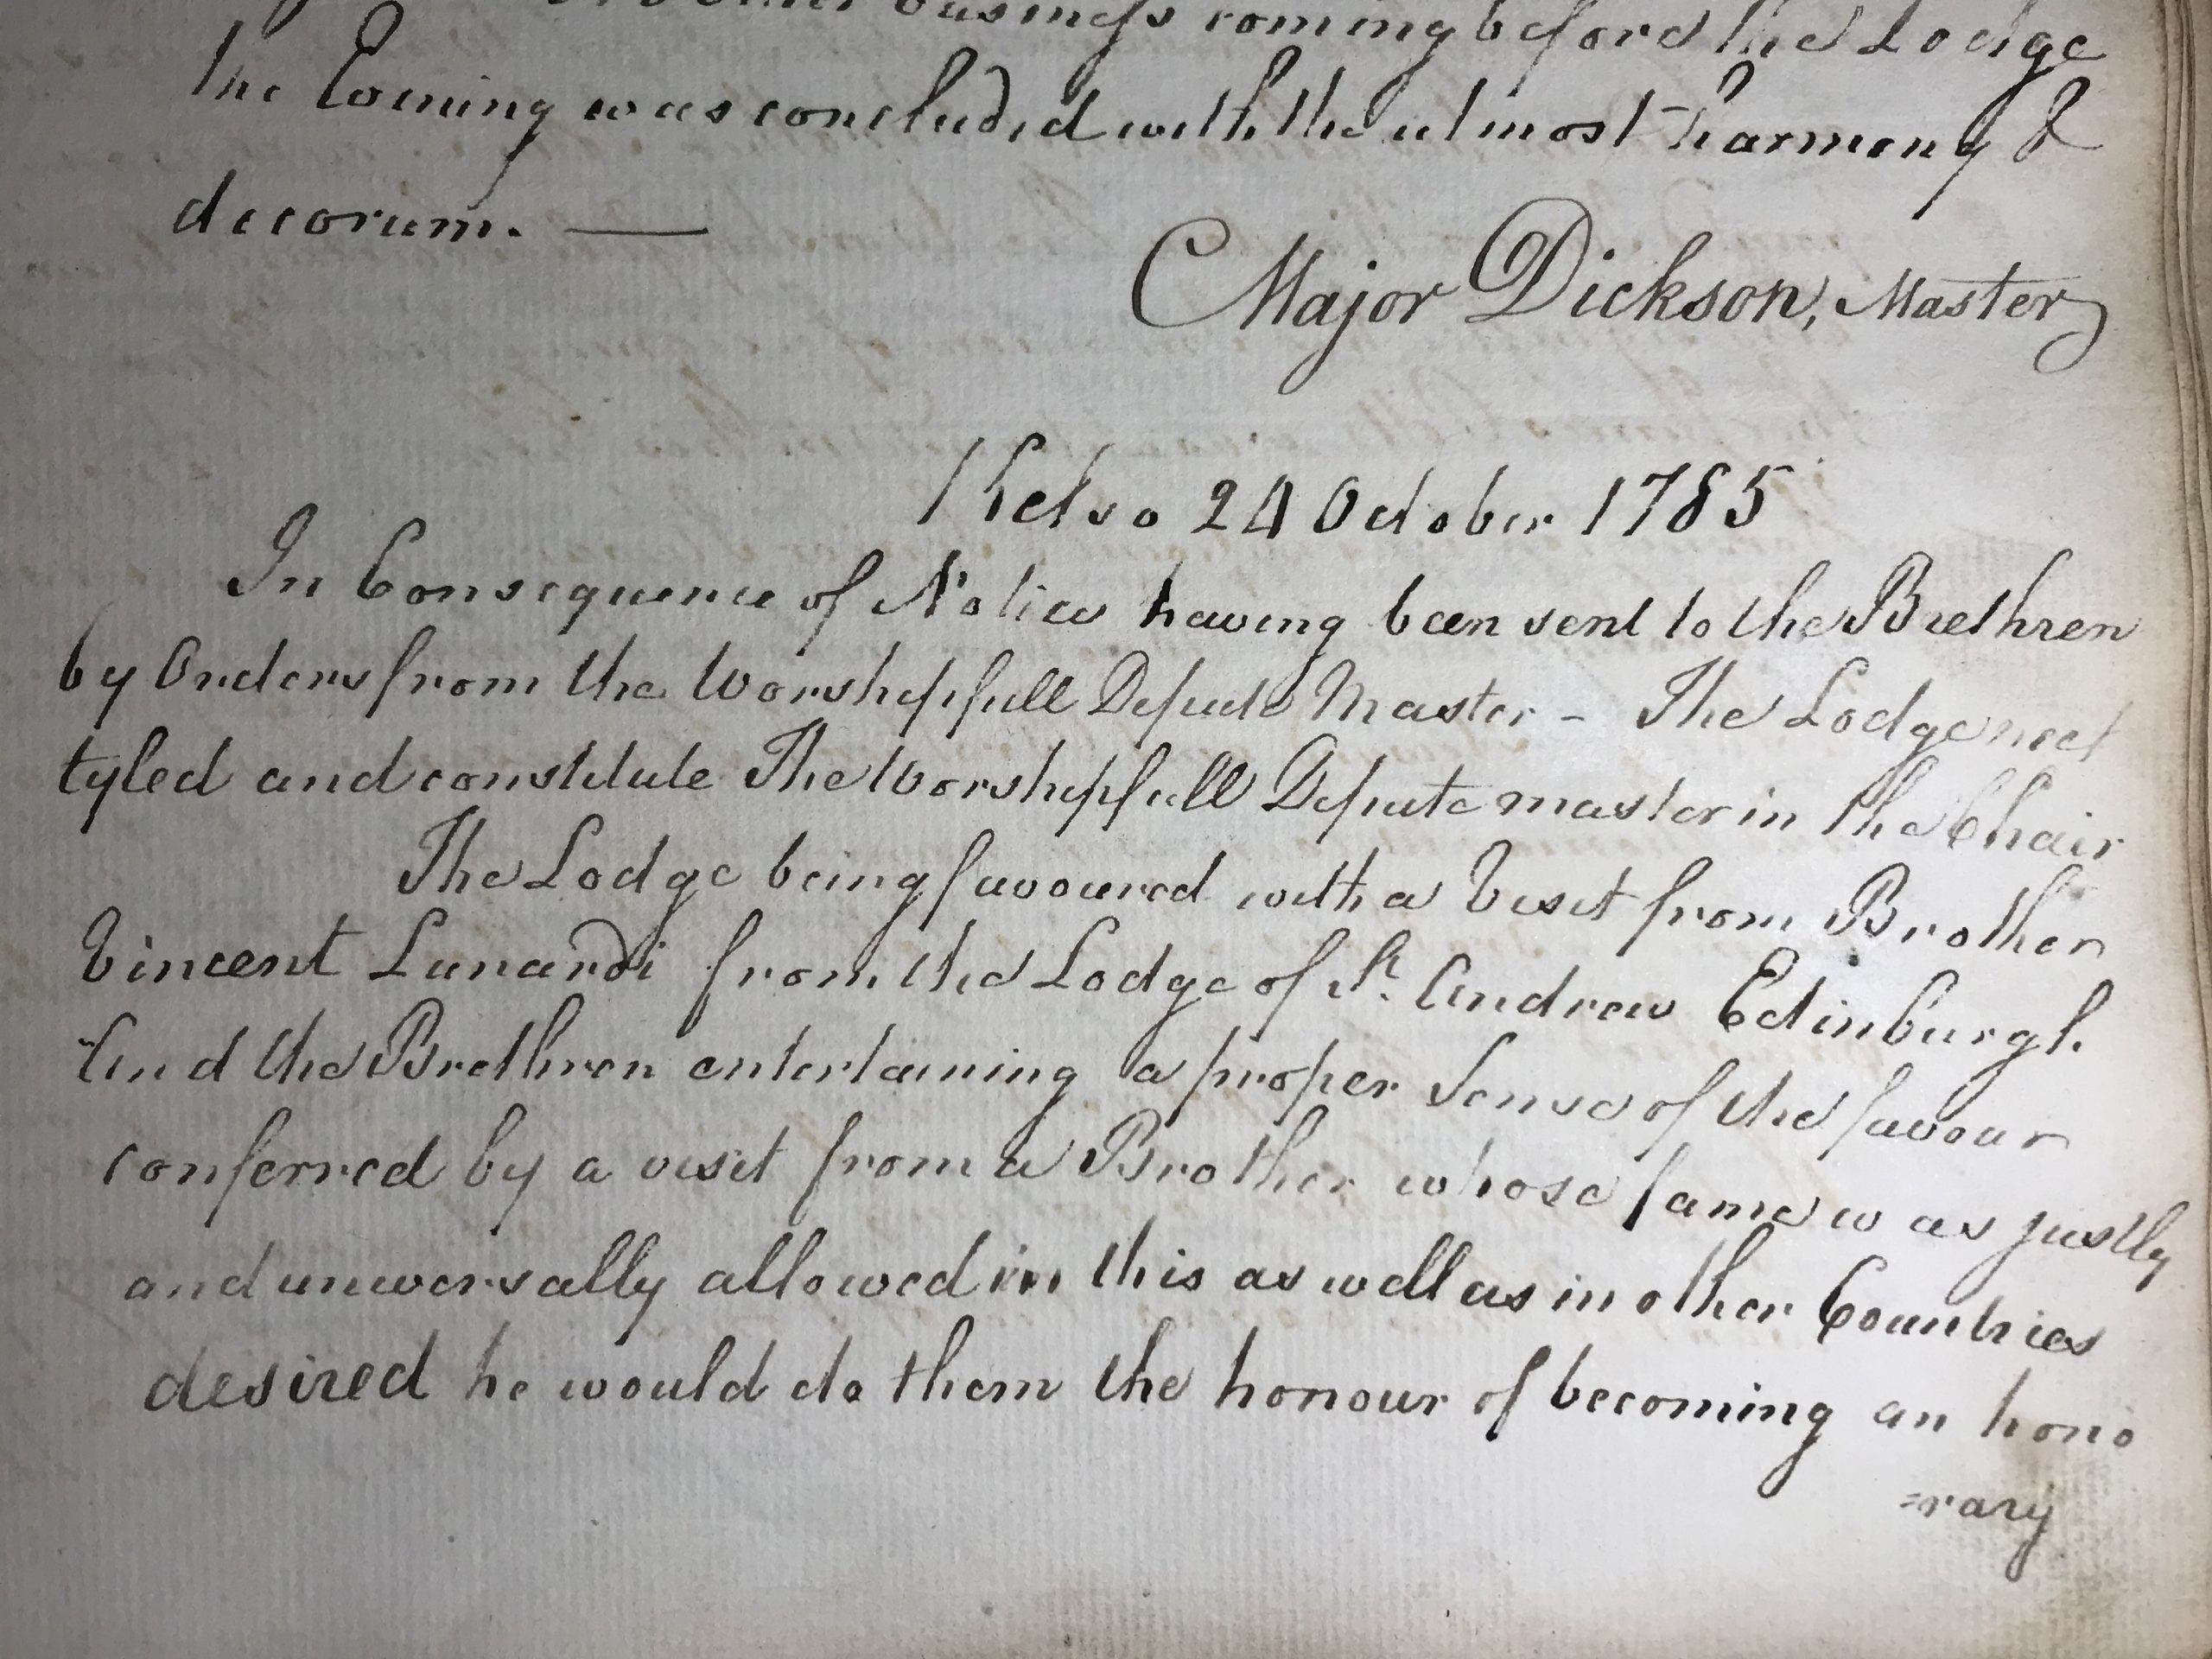 business coming before the Lodge
the Evening was concluded with the utmost harmony &
decorum. —
Major Dickson, Master
Kelso 24 October 1785
In Consequence of Notice having been sent to the Brethren
by Orders from the Worshipfull Depute Master - The Lodge met
tyled and constitute The Worshipfull Depute master in the Chair
The Lodge being favoured with a Visit from Brother
Vincent Lunardi from the Lodge of St. Andrew Edinburgh.
And the Brethren entertaining a proper Sense of the favour
conferred by a visit from a Brother whose fame was justly
and universally allowed in this as well as in other Countries
desired he would do them the honour of becoming an hono
=rary